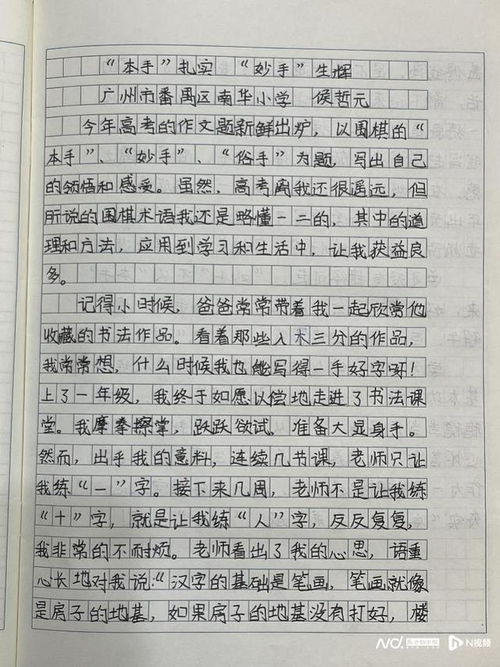 “本手”扎实 “妙手”生辉
广州市番禺区南华小学 侯哲元
今年高考的作文题新鲜出炉，以围棋的“
本手”、“妙手”、“俗手”为题，写出自己
的领悟和感受。虽然，高考离我还很遥远，但
所说的围棋术语我还是略懂一二的，其中的道
理和方法，应用到学习和生活中，让我获益良
多。
记得小时候，爸爸常常带着我一起欣常他
收藏的书法作品。看着那些入木三分的作品，
我常常想，什么时候我也能写得一手好字呀！
上了一年级，我终于如愿以偿地走进了书法课
堂。我摩拳擦掌，跃跃欲试。准备大显身手。
然而，出乎我的意料，连续几节课，老师只让
我练“一”字。接下来几周，老师不是让我练
“十”字，就是让我练“人”字，反反复复，
我非常的不耐烦。老师看出了我的心思，语重
心长地对我说：“汉字的基础是笔画，笔画就像
是房子的地基，如果房子的地基没有打好，楼
N视频